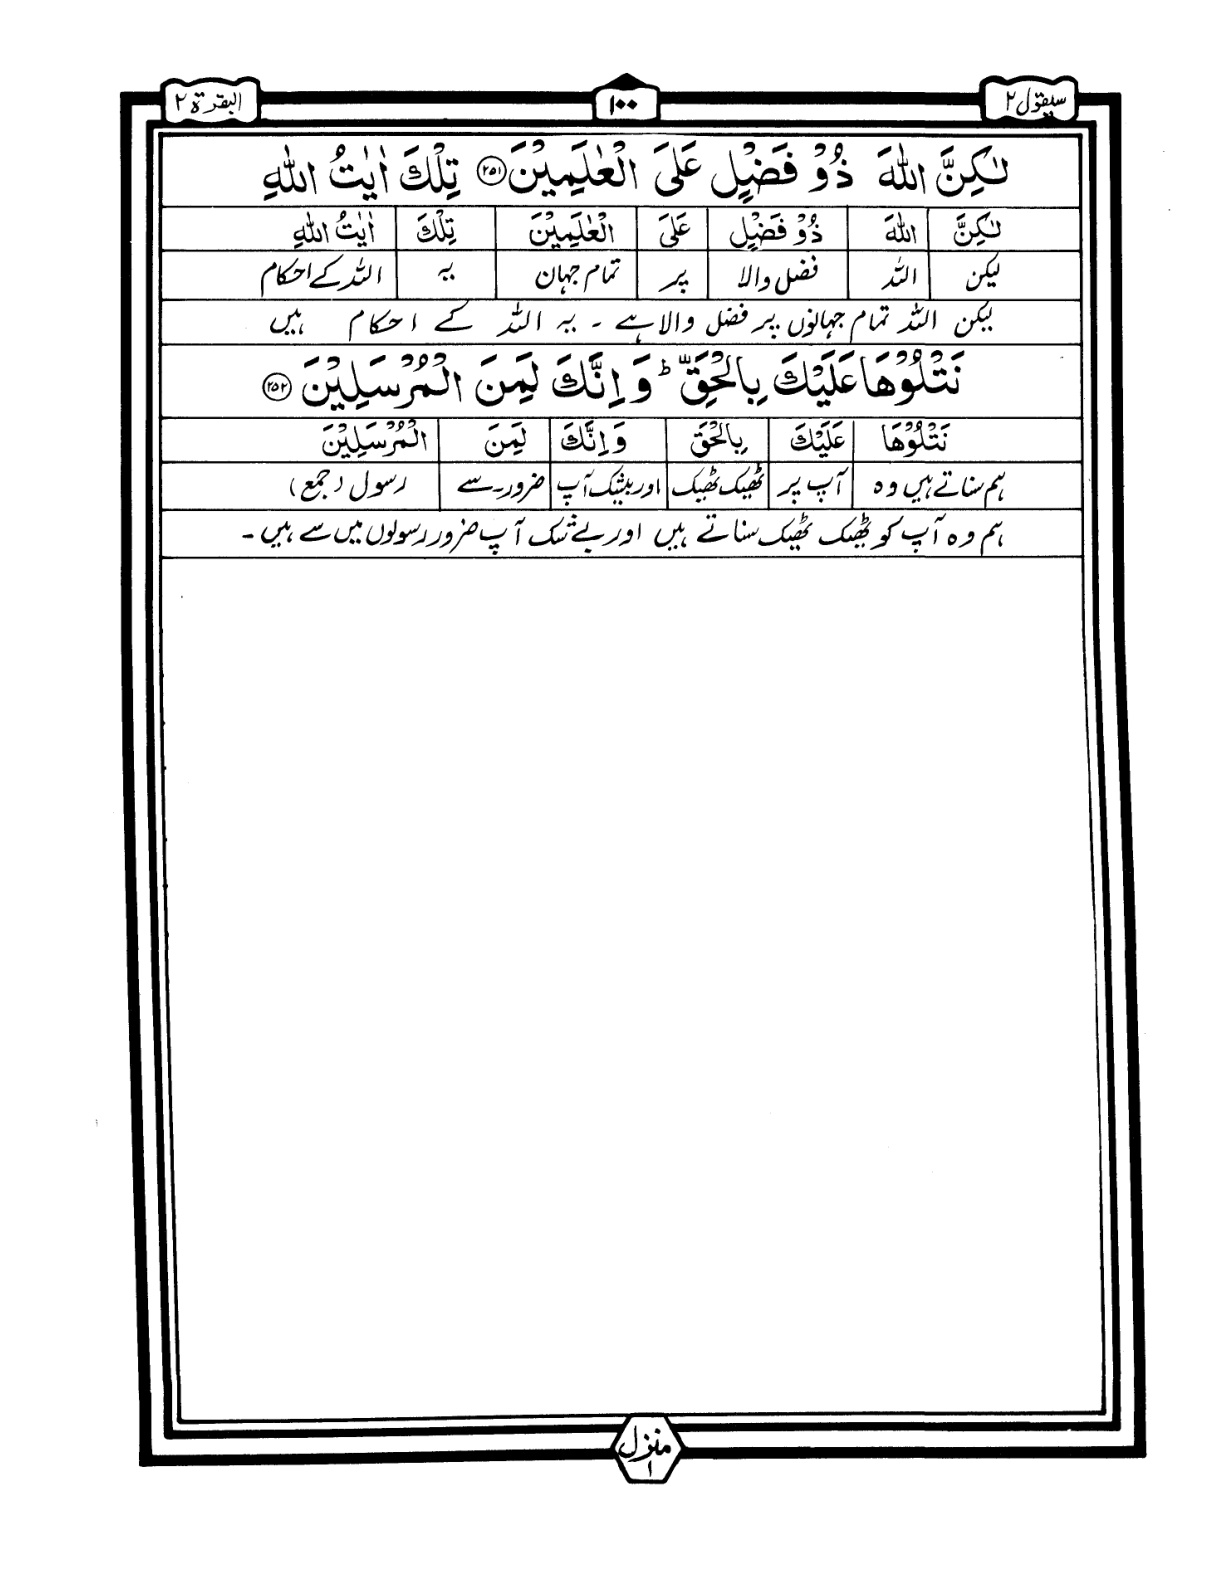 سیقول ۲
۱۰۰
البقرة ۲
لٰكِنَّ اللّٰهَ ذُوْ فَضْلٍ عَلَى الْعٰلَمِيْنَ ۲۵۱ تِلْكَ اٰيٰتُ اللّٰهِ
لٰكِنَّ اللّٰهَ ذُوْ فَضْلٍ عَلَى الْعٰلَمِيْنَ تِلْكَ اٰيٰتُ اللّٰهِ
لیکن اللہ فضل والا پر تمام جہان یہ اللہ کے احکام
لیکن اللہ تمام جہانوں پر فضل والا ہے ۔ یہ اللہ کے احکام ہیں
نَتْلُوْهَا عَلَيْكَ بِالْحَقِّ ؕ وَ اِنَّكَ لَمِنَ الْمُرْسَلِيْنَ ۲۵۲
نَتْلُوْهَا عَلَيْكَ بِالْحَقِّ وَ اِنَّكَ لَمِنَ الْمُرْسَلِيْنَ
ہم سناتے ہیں وہ آپ پر ٹھیک ٹھیک اور بیشک آپ ضرور۔سے رسول (جمع)
ہم وہ آپ کو ٹھیک ٹھیک سناتے ہیں اور بے شک آپ ضرور رسولوں میں سے ہیں ۔
منزل
۱